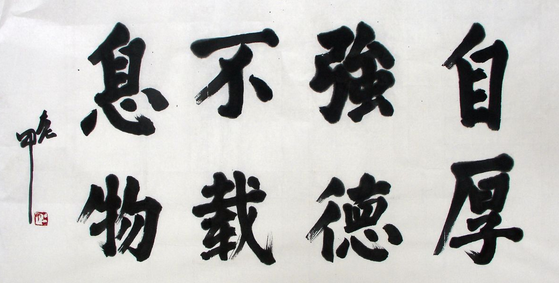 自厚
強德
不載
息物